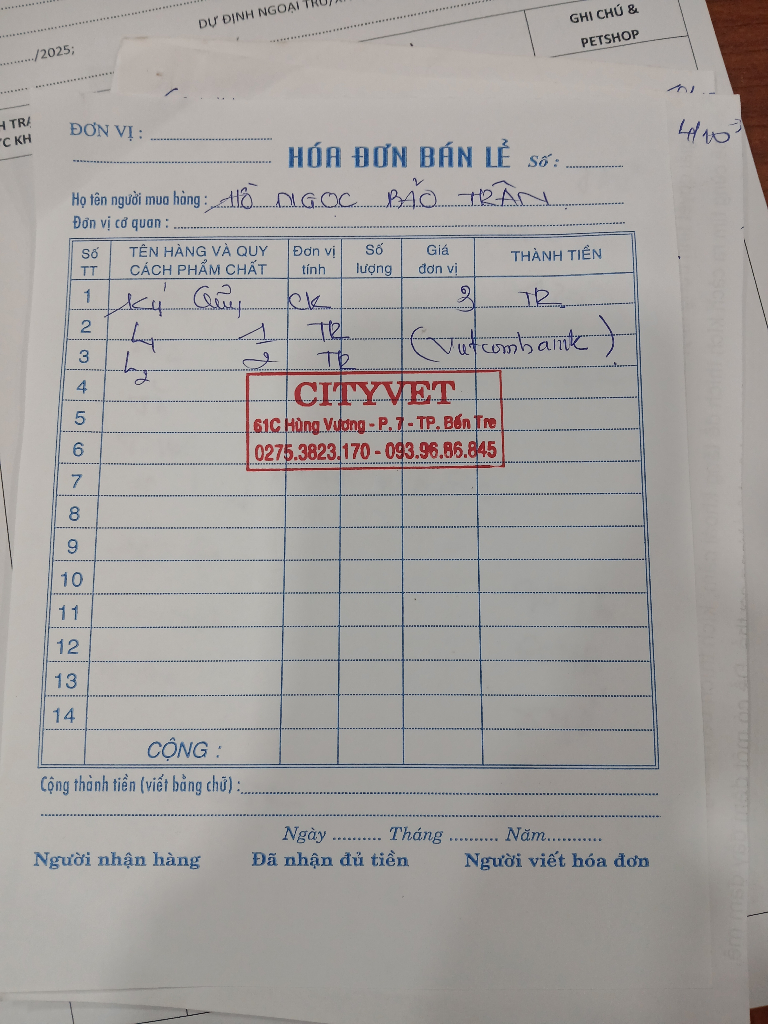 DỰ ĐỊNH NGOẠI TRÚ/
GHI CHÚ &
PETSHOP
/2025;
H TRẠ
ỨC KH
4/10
ĐƠN VỊ :
HÓA ĐƠN BÁN LẺ Số :
Họ tên người mua hàng : HỒ NGỌC BẢO TRÂN
Đơn vị cơ quan :
Số TT TÊN HÀNG VÀ QUY CÁCH PHẨM CHẤT Đơn vị tính Số lượng Giá đơn vị THÀNH TIỀN
1 Ký Quỹ CK 3 TR
2 L1 1 TR
3 L2 2 TR (Vietcombank)
4
CITYVET
5
61C Hùng Vương - P. 7 - TP. Bến Tre
6
0275.3823.170 - 093.96.86.845
7
8
9
10
11
12
13
14
CỘNG :
Cộng thành tiền (viết bằng chữ) :
Ngày .......... Tháng .......... Năm...........
Người nhận hàng Đã nhận đủ tiền Người viết hóa đơn